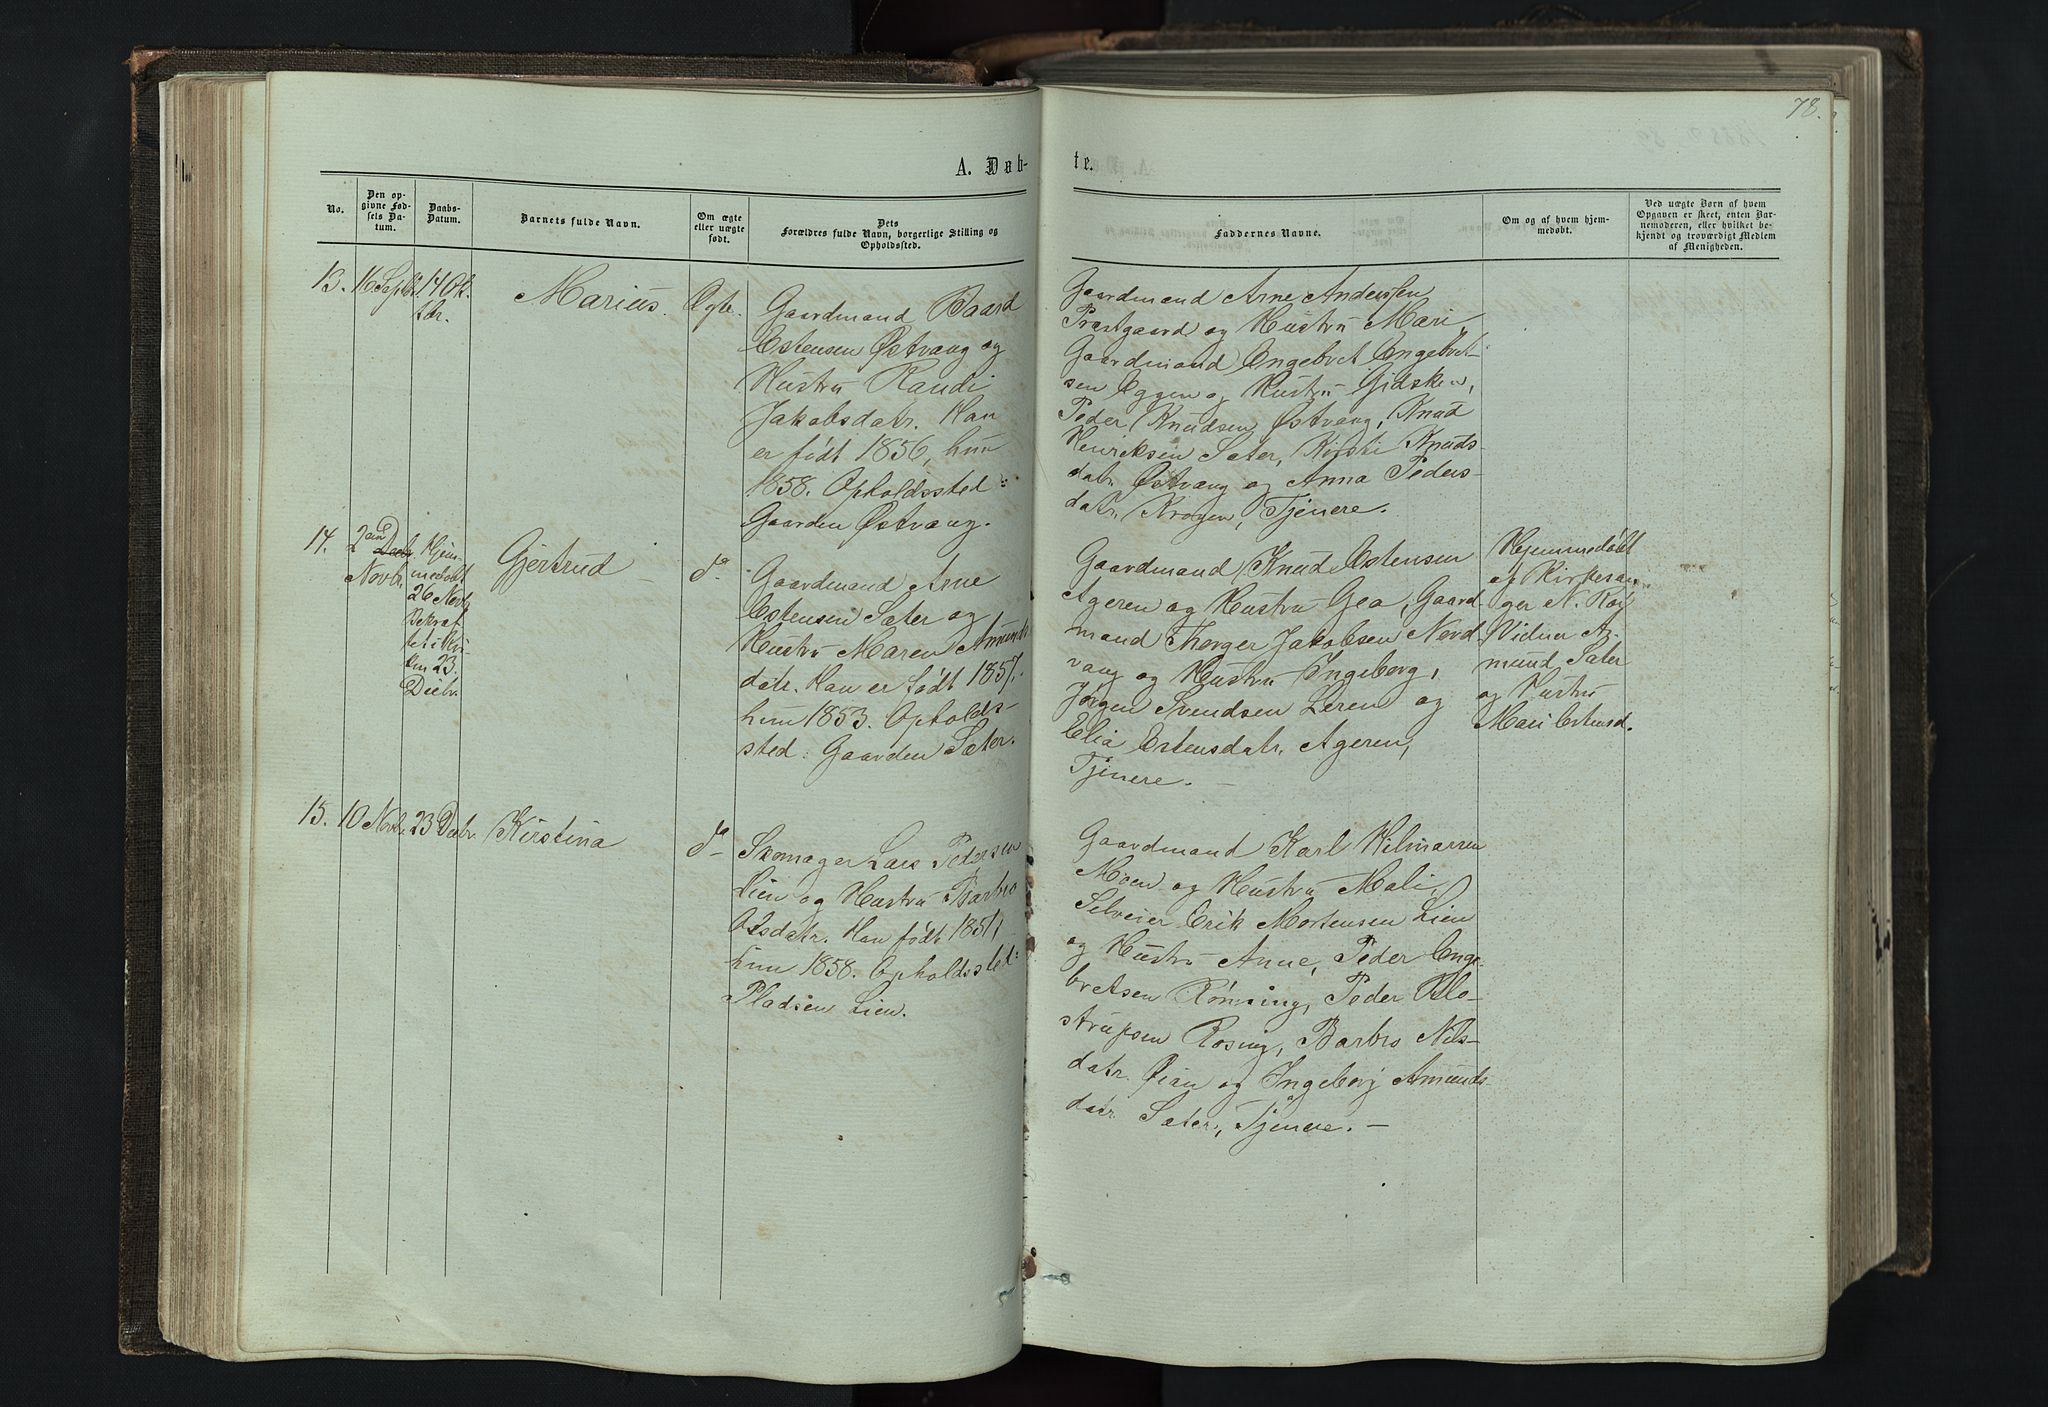 78.
A. Døb-
te.
No.
Den op-
givne Fød-
sels Da-
tum.
Daabs-
Datum.
Barnets fulde Navn.
Om ægte
eller uægte
født.
Dets
Forældres fulde Navn, borgerlige Stilling og
Opholdssted.
Faddernes Navne.
Om og af hvem hjem-
medøbt.
Ved uægte Børn af hvem
Opgaven er skeet, enten Bar-
nemoderen, eller hvilket be-
kjendt og troværdigt Medlem
af Menigheden.
13.
16 Septbr.
14 Ok-
tbr.
Marius.
Ægte.
Gaardmand Baard
Estensen Østvang og
Hustru Randi
Jakobsdatr. Han
er født 1856, hun
1858. Opholdssted:
Gaarden Østvang.
Gaardmand Arne Anderssen
Præstgaard og Hustru Mari,
Gaardmand Engebret Engebret-
sen Eggen og Hustru Gidsken,
Peder Knudsen Østvang, Knud
Henriksen Sæter, Kirsti Knuds-
datr. Østvang og Anna Peders-
datr. Krogen, Tjenere.
14.
2den Decbr.
Novbr.
Hjem-
medøbt
26 Novbr.
Bekræf-
tet i Kir-
ken 23.
Decbr.
Gjertrud
do
Gaardmand Arne
Estensen Sæter og
Hustru Maren Amunds-
datr. Han er født 1857.
hun 1853. Opholds-
sted: Gaarden Sæter.
Gaardmand Knud Estensen
Ageren og Hustru Gea, Gaard-
mand Thorger Jakobsen Nord-
vang og Hustru Ingeborg,
Jørgen Svendsen Leren og
Elia Estensdatr. Ageren,
Tjenere. –
Hjemmedøbt
af Kirkesan-
ger N.
Vidner A-
mund Sæter
og Hustru
Mari Estensd.
15.
10 Novbr.
23 Decbr.
Kirstina
do
Skomager Lars Pedersen
Lien og Hustru Barbro
Olsdatr. Han født 1851,
hun 1858. Opholdssted:
Pladsen Lien.
Gaardmand Karl Hilmarsen
Moen og Hustru Mali,
Selveier Erik Mortensen Lien
og Hustru Anne, Peder Enge-
bretsen Rønning, Peder Klo-
strupsen Rosing, Barbro Nils-
datr. Øian og Ingeborg Amunds-
datr. Sæter, Tjenere. –